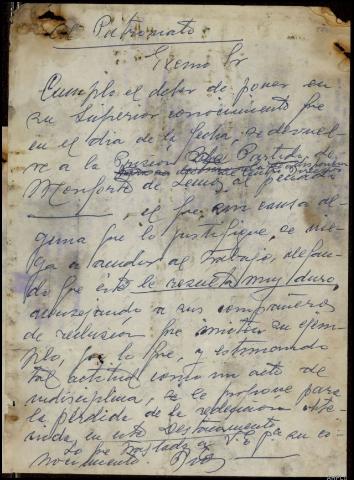 Al Patronato
Excmo Sr
Cumplo el deber de poner en
su Superior conocimiento que
en el dia de la fecha, se devuel-
ve a la Prision del Partido de
Monforte de Lemos al penado
, el que sin causa al-
guna que lo justifique, se nie-
ga a acudir al trabajo, alegan-
do que éste le resulta muy duro,
aconsejando a sus compañeros
de reclusion que imiten su ejem-
plo, por lo que, y estimando
tal actitud como un acto de
indisciplina, se le propone para
la pérdida de la redencion obte-
nida, en este Destacamento.
Lo que traslado a V.E. pª su co-
nocimiento. Dios